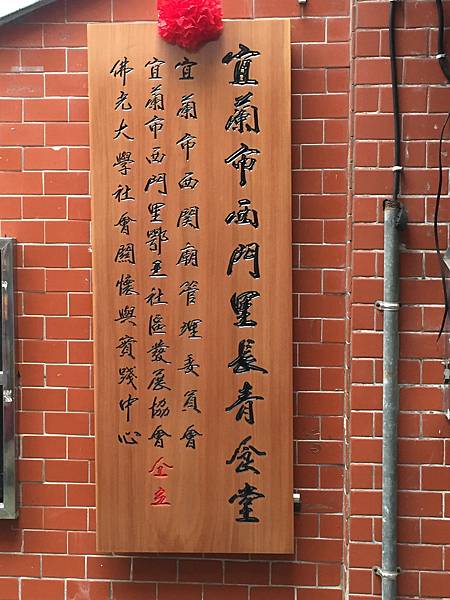 宜蘭市西門里長青食堂
宜蘭市西関廟管理委員會
宜蘭市西門里鄂王社區發展協會
佛光大學社會關懷與實踐中心
仝立